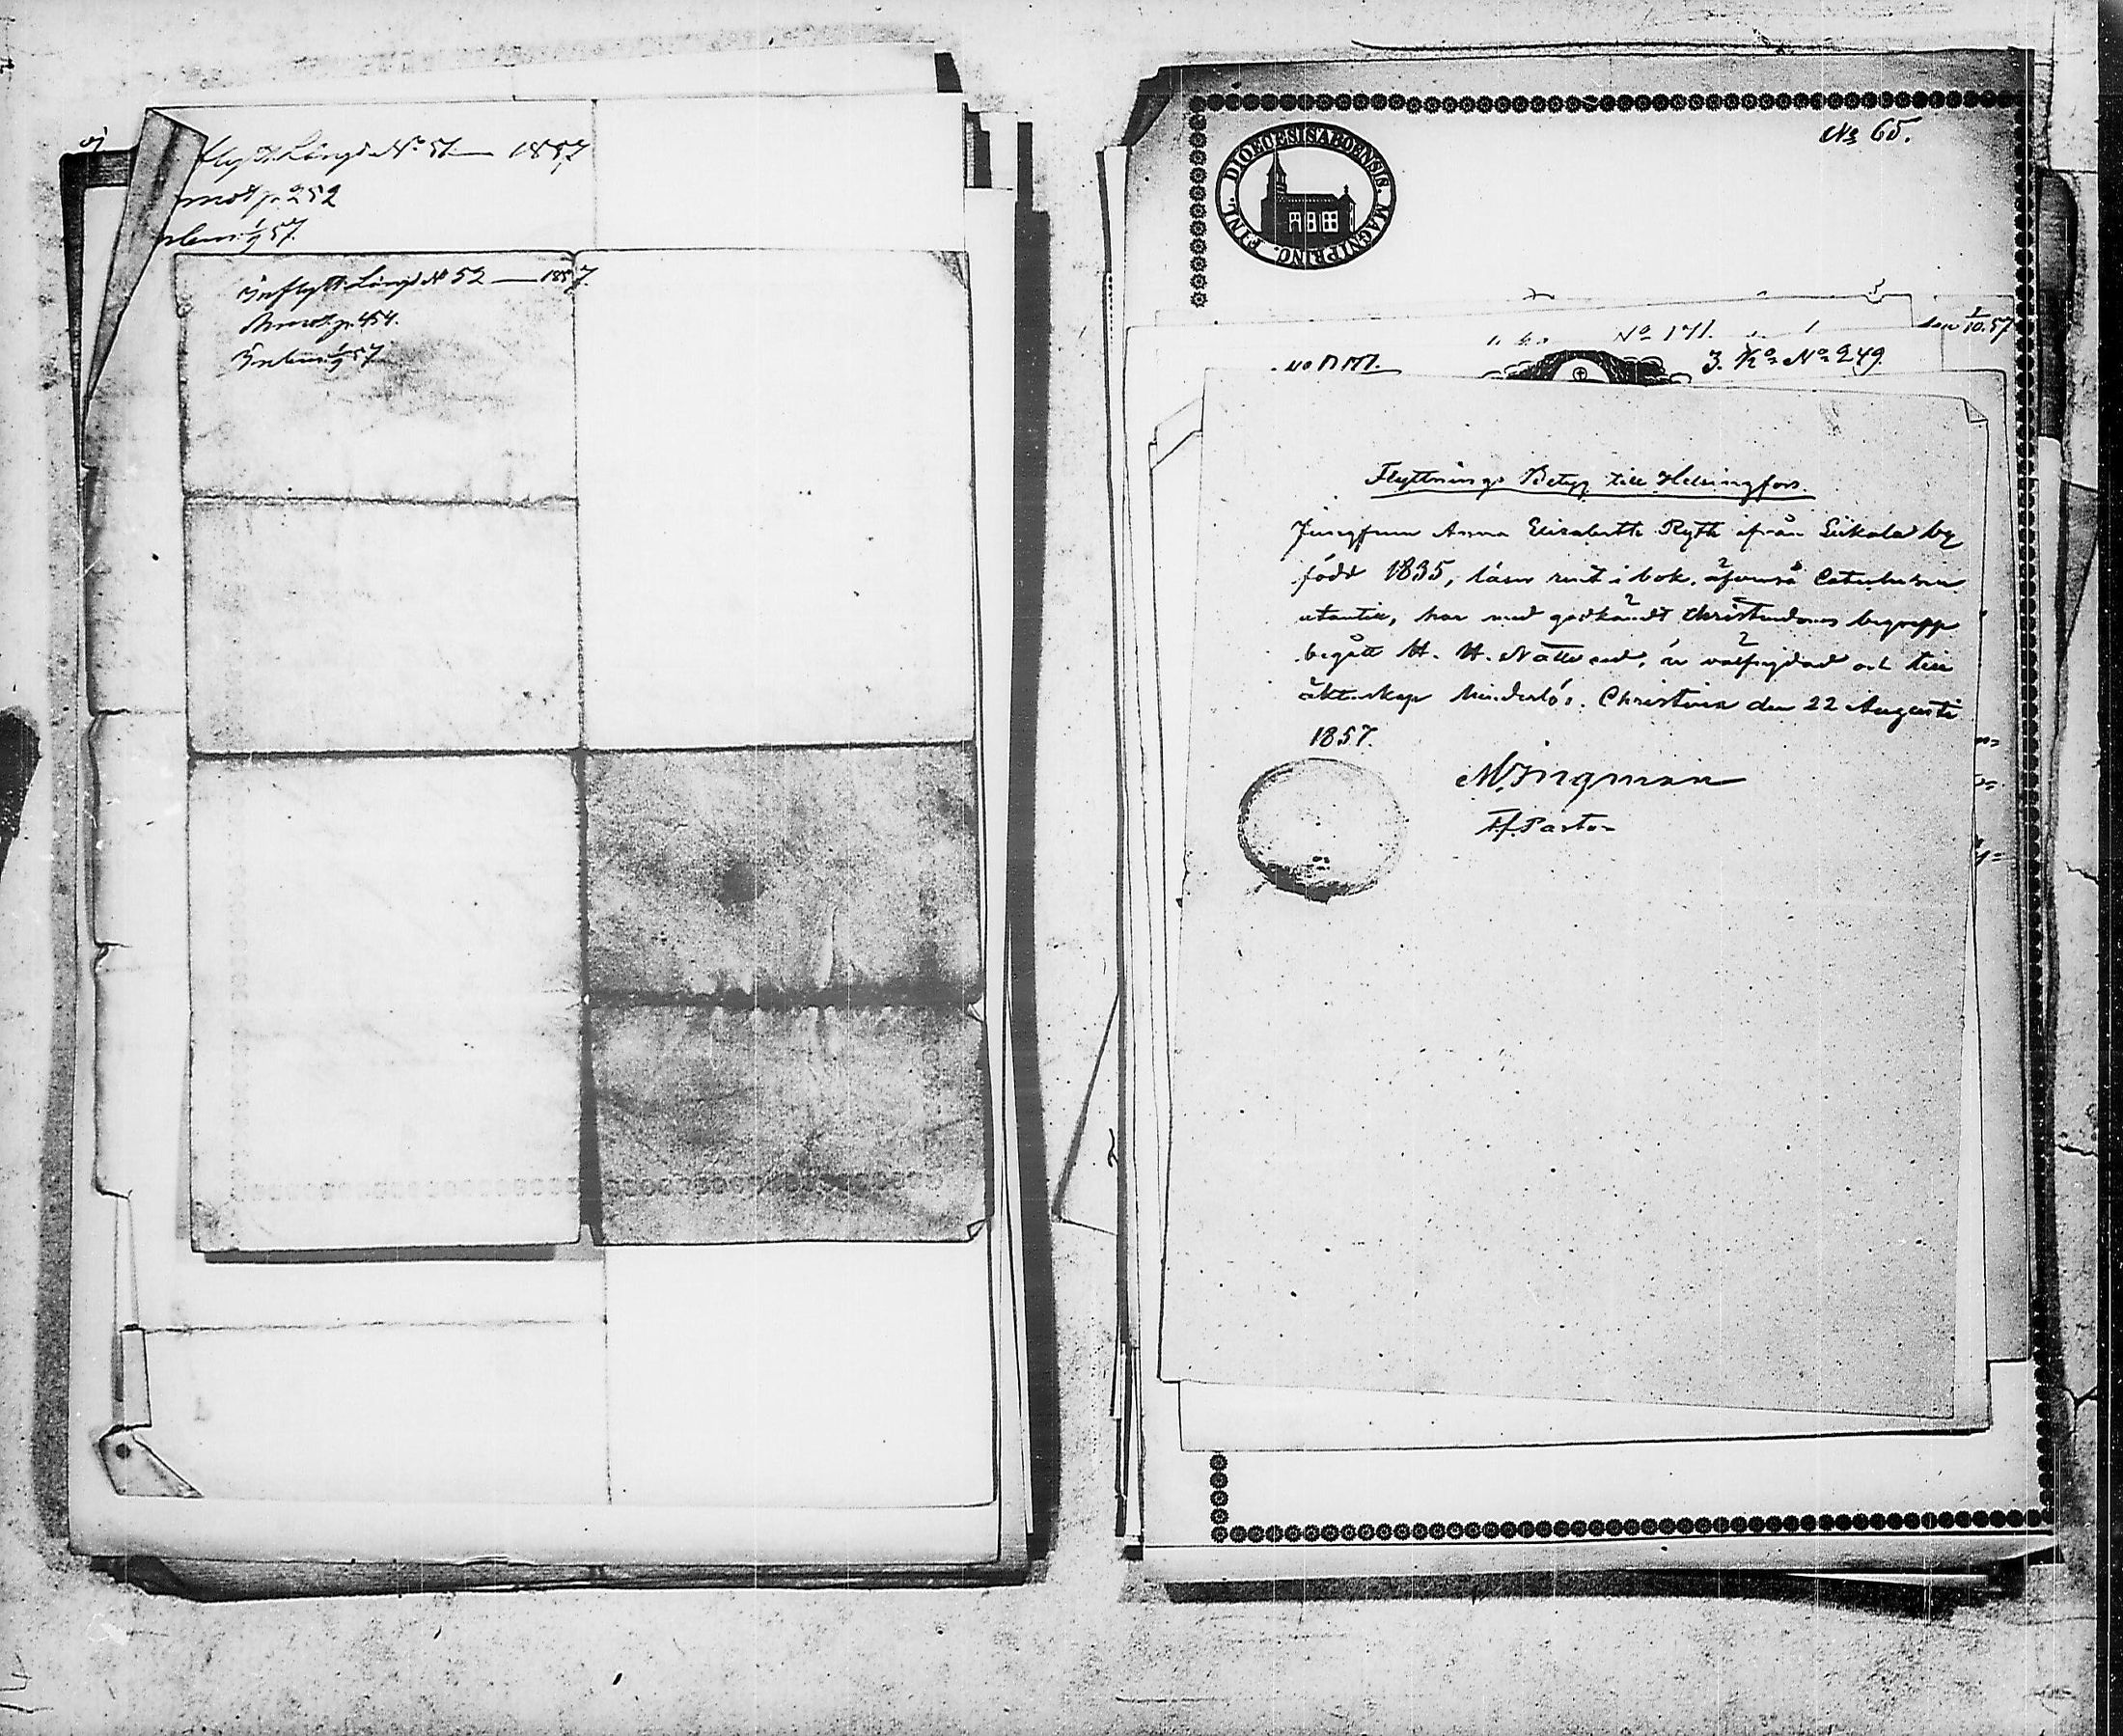 flytt. Längd No 51 — 1857
annot p. 252
Inflytt. Längd No 52 — 1857.
Annot p. 454.
No 65.
DIOECESIS ABOENSIS. MAGNI PRINC. FINL.
den 1/10. 57
No 171.
3. Ko No 249
Flyttnings Betyg till Helsingfors.
Jungfrun Anna Elisabeth Ryth ifrån by
född 1835, läser rent i bok, äfvenså Catechesen
utantill, har med godkändt Christendoms begrepp
begått H. H. Nattvard, är välfrejdad och till
äktenskap hinderlös. Christina den 22 Augusti
1857.
M. Ingman
Tf. Pastor